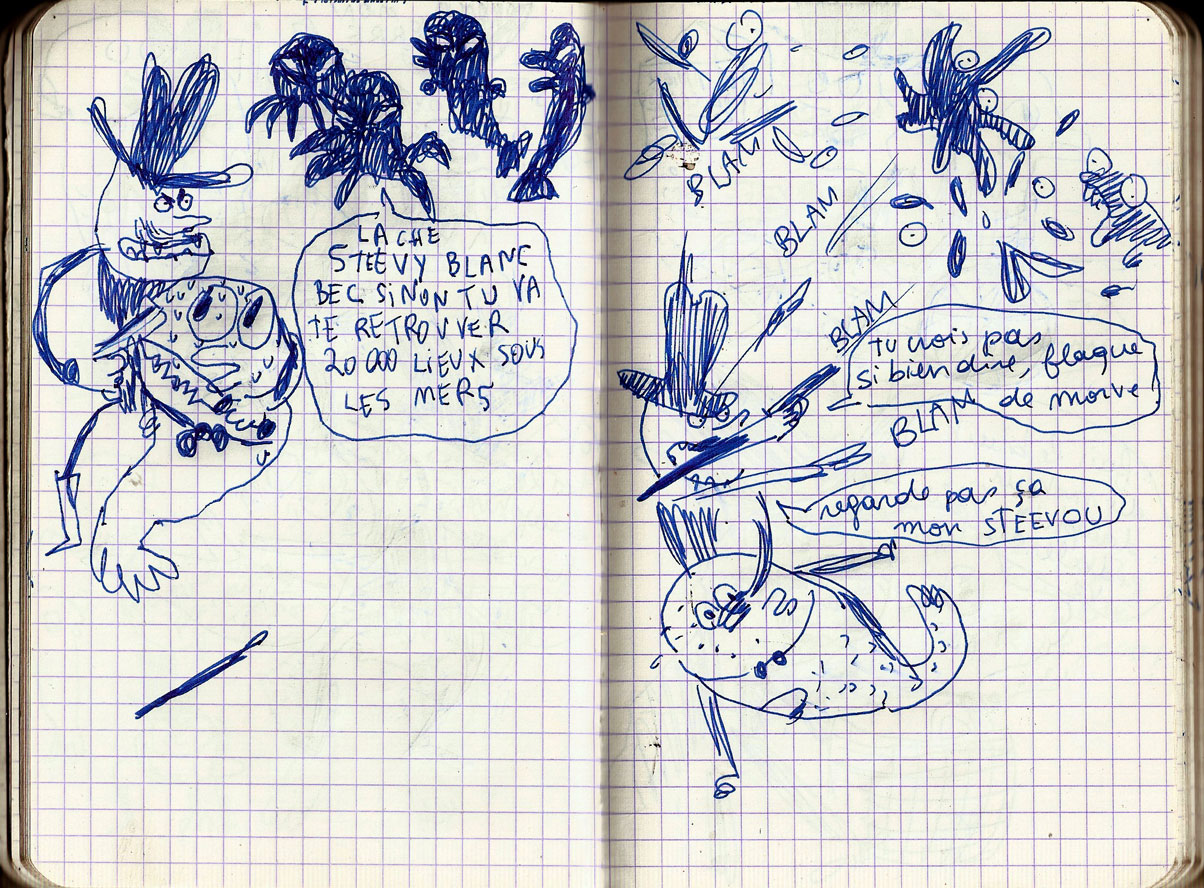 LACHE
STEEVY BLANC
BEC SINON TU VA
TE RETROUVER
20 000 LIEUX SOUS
LES MERS
BLAM
BLAM
BLAM
tu crois pas
si bien dire, flaque
de morve
BLAM
regarde pas ça
mon STEEVOU